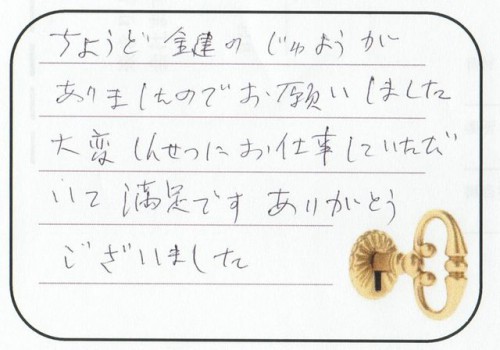 ちょうど 鍵の じゅようが
ありましたのでお願いしました
大変しんせつにお仕事していただ
いて 満足です ありがとう
ございました